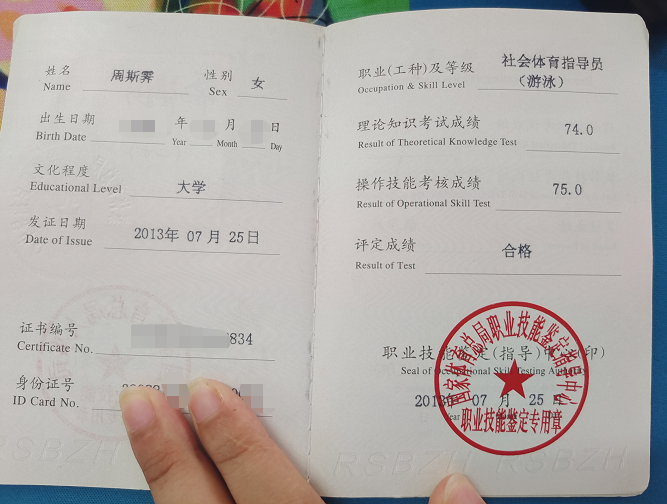 姓名 周斯霁 性别 女
Name Sex
出生日期 年 月 日
Birth Date Year Month Day
文化程度 大学
Educational Level
发证日期 2013年 07 月 25日
Date of Issue
证书编号 834
Certificate No.
身份证号
ID Card No.
社会体育指导员
职业(工种)及等级 (游泳)
Occupation & Skill Level
理论知识考试成绩 74.0
Result of Theoretical Knowledge Test
操作技能考核成绩 75.0
Result of Operational Skill Test
评定成绩 合格
Result of Test
职业技能鉴定(指导)中心(印)
Seal of Occupational Skill Testing Authority
2013年 07 月 25 日
国家体育总局职业技能鉴定指导中心
职业技能鉴定专用章
RSBZH RSBZH RSBZH